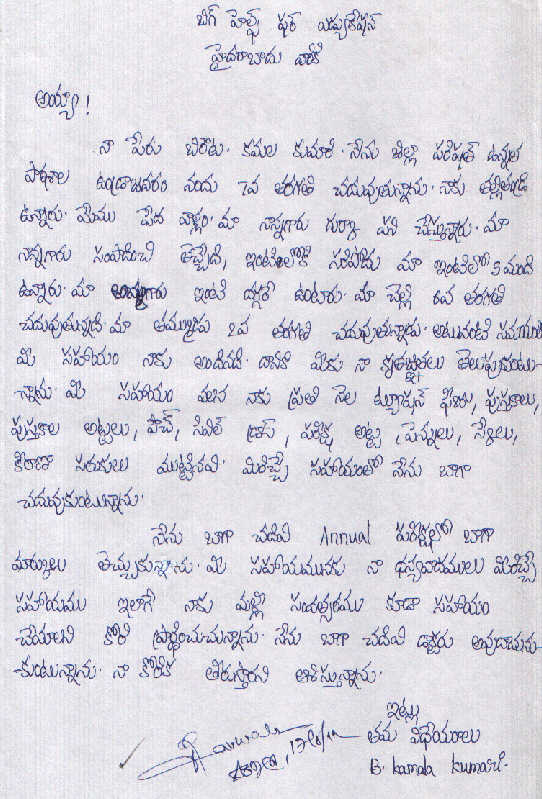 బిగ్ హెల్ప్ ఫర్ ఎడ్యుకేషన్
హైదరాబాదు వారికి
అయ్యా!
నా పేరు బి. కమల కుమారి. నేను జిల్లా పరిషత్ ఉన్నత
పాఠశాల నందు 7వ తరగతి చదువుతున్నాను. నాకు తల్లితండ్రి
ఉన్నారు. మేము పేద వాళ్ళం. మా నాన్నగారు గుర్ఖా పని చేస్తున్నారు. మా
నాన్నగారు సంపాదించి తెచ్చేది, ఇంటిలోకి సరిపోదు మా ఇంటిలో 5 మంది
ఉన్నారు. మా అమ్మగారు ఇంటి దగ్గరే ఉంటారు. మా చెల్లి 6వ తరగతి
చదువుతున్నది. మా తమ్ముడు 2వ తరగతి చదువుతున్నాడు. అటువంటి సమయంలో
మీ సహాయం నాకు అందినది. దానికి మీకు నా కృతజ్ఞతలు తెలుపుకుంటు-
న్నాను. మీ సహాయం వలన నాకు ప్రతి నెల ట్యూషన్ ఫీజు, పుస్తకాలు,
పుస్తకాల అట్టలు, పౌచ్, సివిల్ డ్రస్, పరీక్ష అట్ట, పెన్నులు, స్కేలు,
కిరాణా సరుకులు ముట్టినవి. మీరిచ్చే సహాయంతో నేను బాగా
చదువుకుంటున్నాను.
నేను బాగా చదివి Annual పరీక్షలో బాగా
మార్కులు తెచ్చుకున్నాను. మీ సహాయమునకు నా ధన్యవాదములు మీరిచ్చే
సహాయము ఇలాగే నాకు మళ్లీ సంవత్సరము కూడా సహాయం
చేయాలని కోరి ప్రార్థించుచున్నాను. నేను బాగా చదివి డాక్టరు అవుదామను-
కుంటున్నాను. నా కోరిక తీరుస్తారని ఆశిస్తున్నాను.
ఇట్లు
తమ విధేయురాలు
B. kamala kumari.